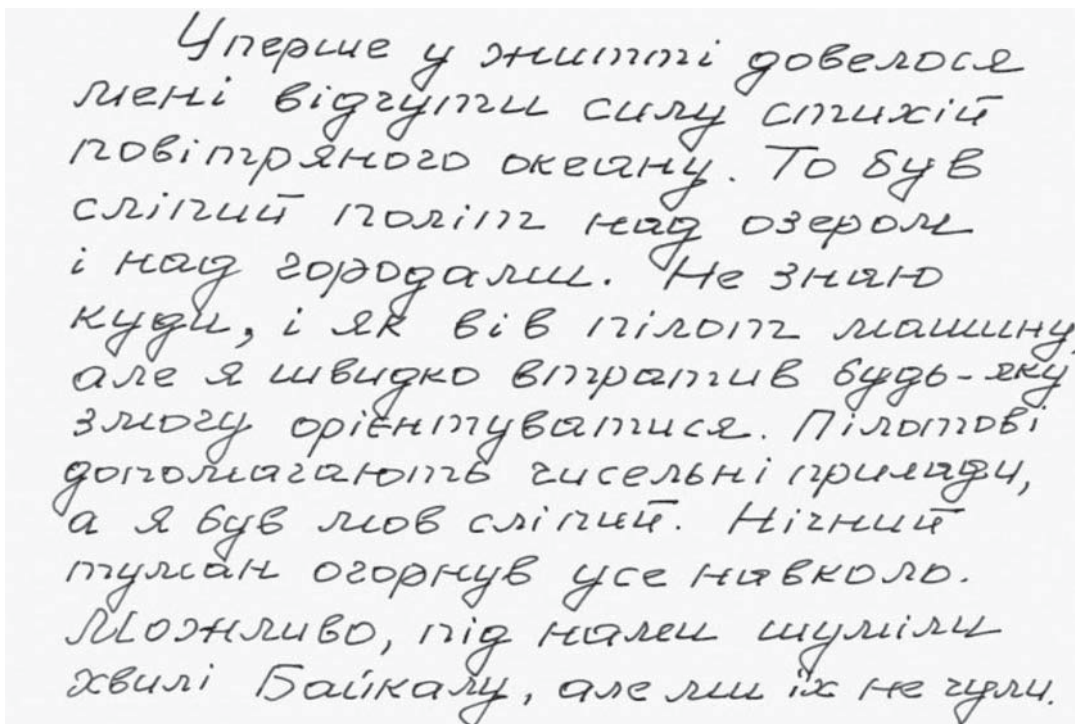 Уперше у житті довелося
мені відчути силу стихій
повітряного океану. То був
сліпий політ над озером
і над городами. Не знаю
куди, і як вів пілот машину,
але я швидко втратив будь-яку
змогу орієнтуватися. Пілотові
допомагають чисельні прилади,
а я був мов сліпий. Нічний
туман огорнув усе навколо.
Можливо, під нами шуміли
хвилі Байкалу, але ми їх не чули.